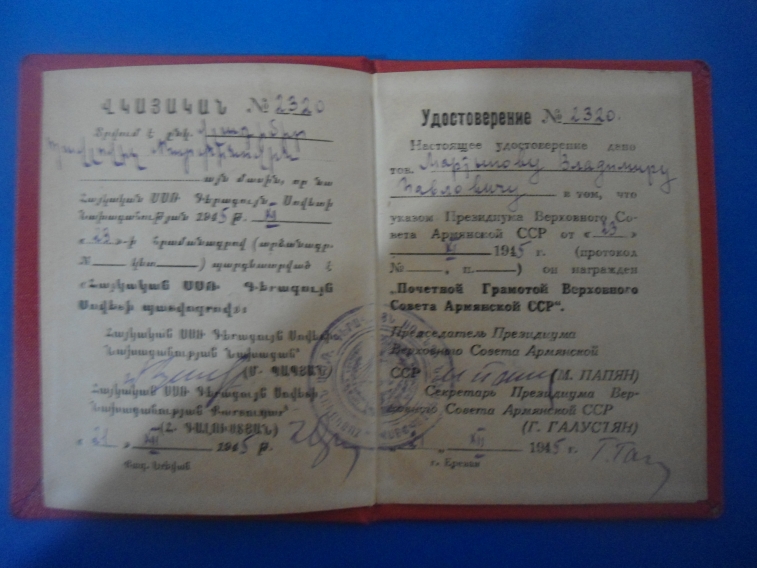 ՎԿԱՅԱԿԱՆ № 2320
Տրվում է ընկ. Վլադիմիր
այն մասին, որ նա
Հայկական ՍՍՌ Գերագույն Սովետի
Նախագահության 1945 թ. XI
« 23 »-ի հրամանագրով (արձանագր.
№ —— կետ. ——) պարգևատրված է
«Հայկական ՍՍՌ Գերագույն
Սովետի պատվոգրով»:
Հայկական ՍՍՌ Գերագույն Սովետի
Նախագահության Նախագահ՝
(Մ. ՊԱՊՅԱՆ)
Հայկական ՍՍՌ Գերագույն Սովետի
Նախագահության Քարտուղար՝
(Հ. ԳԱԼՈՒՍՏՅԱՆ)
« 21 » XII 1945 թ.
Քաղ. Երևան
Удостоверение № 2320.
Настоящее удостоверение дано
тов. Мартынову Владимиру
Павловичу в том, что
указом Президиума Верховного Со-
вета Армянской ССР от « 23 »
XI 1945 г. (протокол
№ ——, п. ——) он награжден
„Почетной Грамотой Верховного
Совета Армянской ССР“.
Председатель Президиума
Верховного Совета Армянской
ССР (М. ПАПЯН)
Секретарь Президиума Вер-
ховного Совета Армянской ССР
(Г. ГАЛУСТЯН)
« 21 » XII 1945 г.
г. Ереван